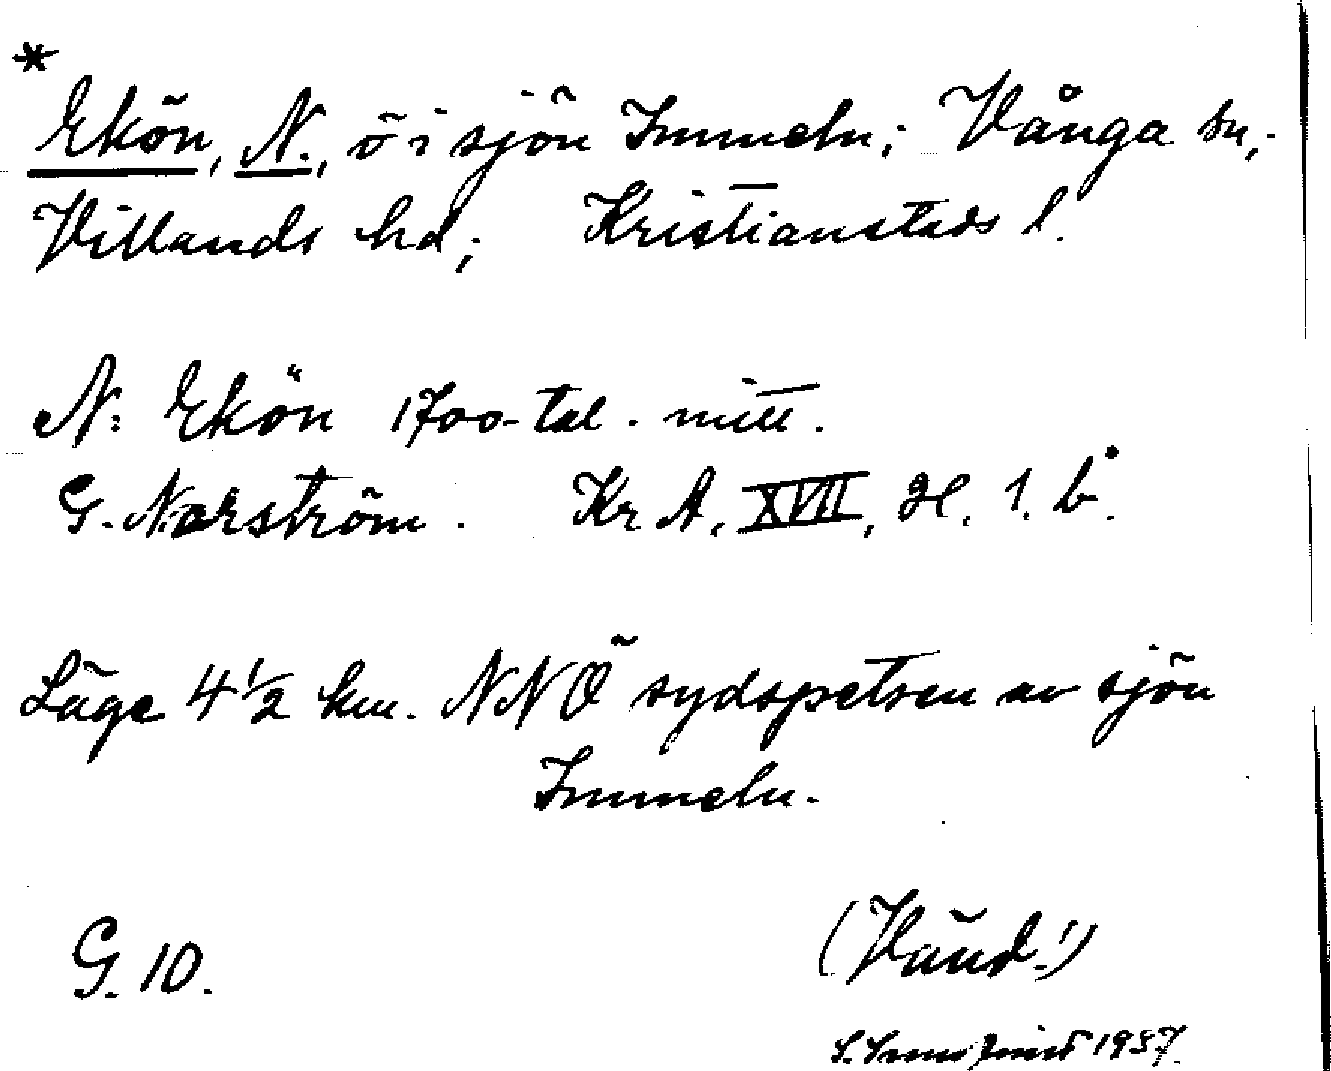 *
Ekön, N., ö i sjön Immeln; Vånga sn,
Villands hd; Kristianstads l.
N: Ekön 1700-tal. mitt.
G. Norström. Kr A, XVII, H. 1. b.
Läge 4 1/2 km. NNÖ sydspetsen av sjön
Immeln.
G. 10.
(Vänd!)
1937